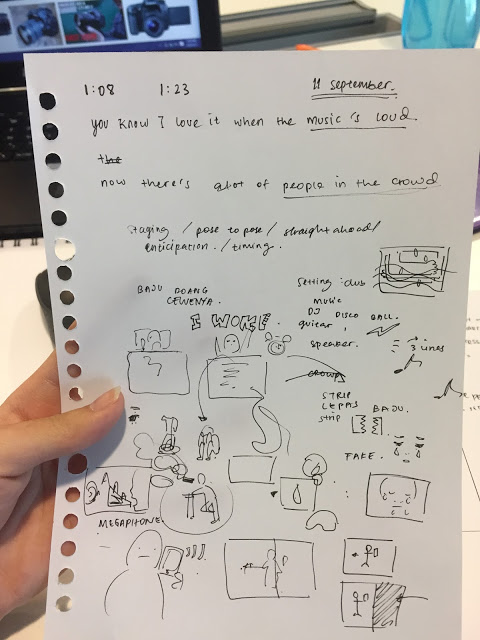 1:08 1:23 11 September.
you know I love it when the music's loud.
the
now there's alot of people in the crowd
staging / pose to pose / straight ahead /
anticipation. / timing.
BAJU DOANG
CEWENYA.
I WOKE.
setting: club
music
DJ DISCO BALL.
guitar,
speaker.
3 lines
CROWD
STRIP
LEPAS BAJU.
strip
FAKE.
MEGAPHONE